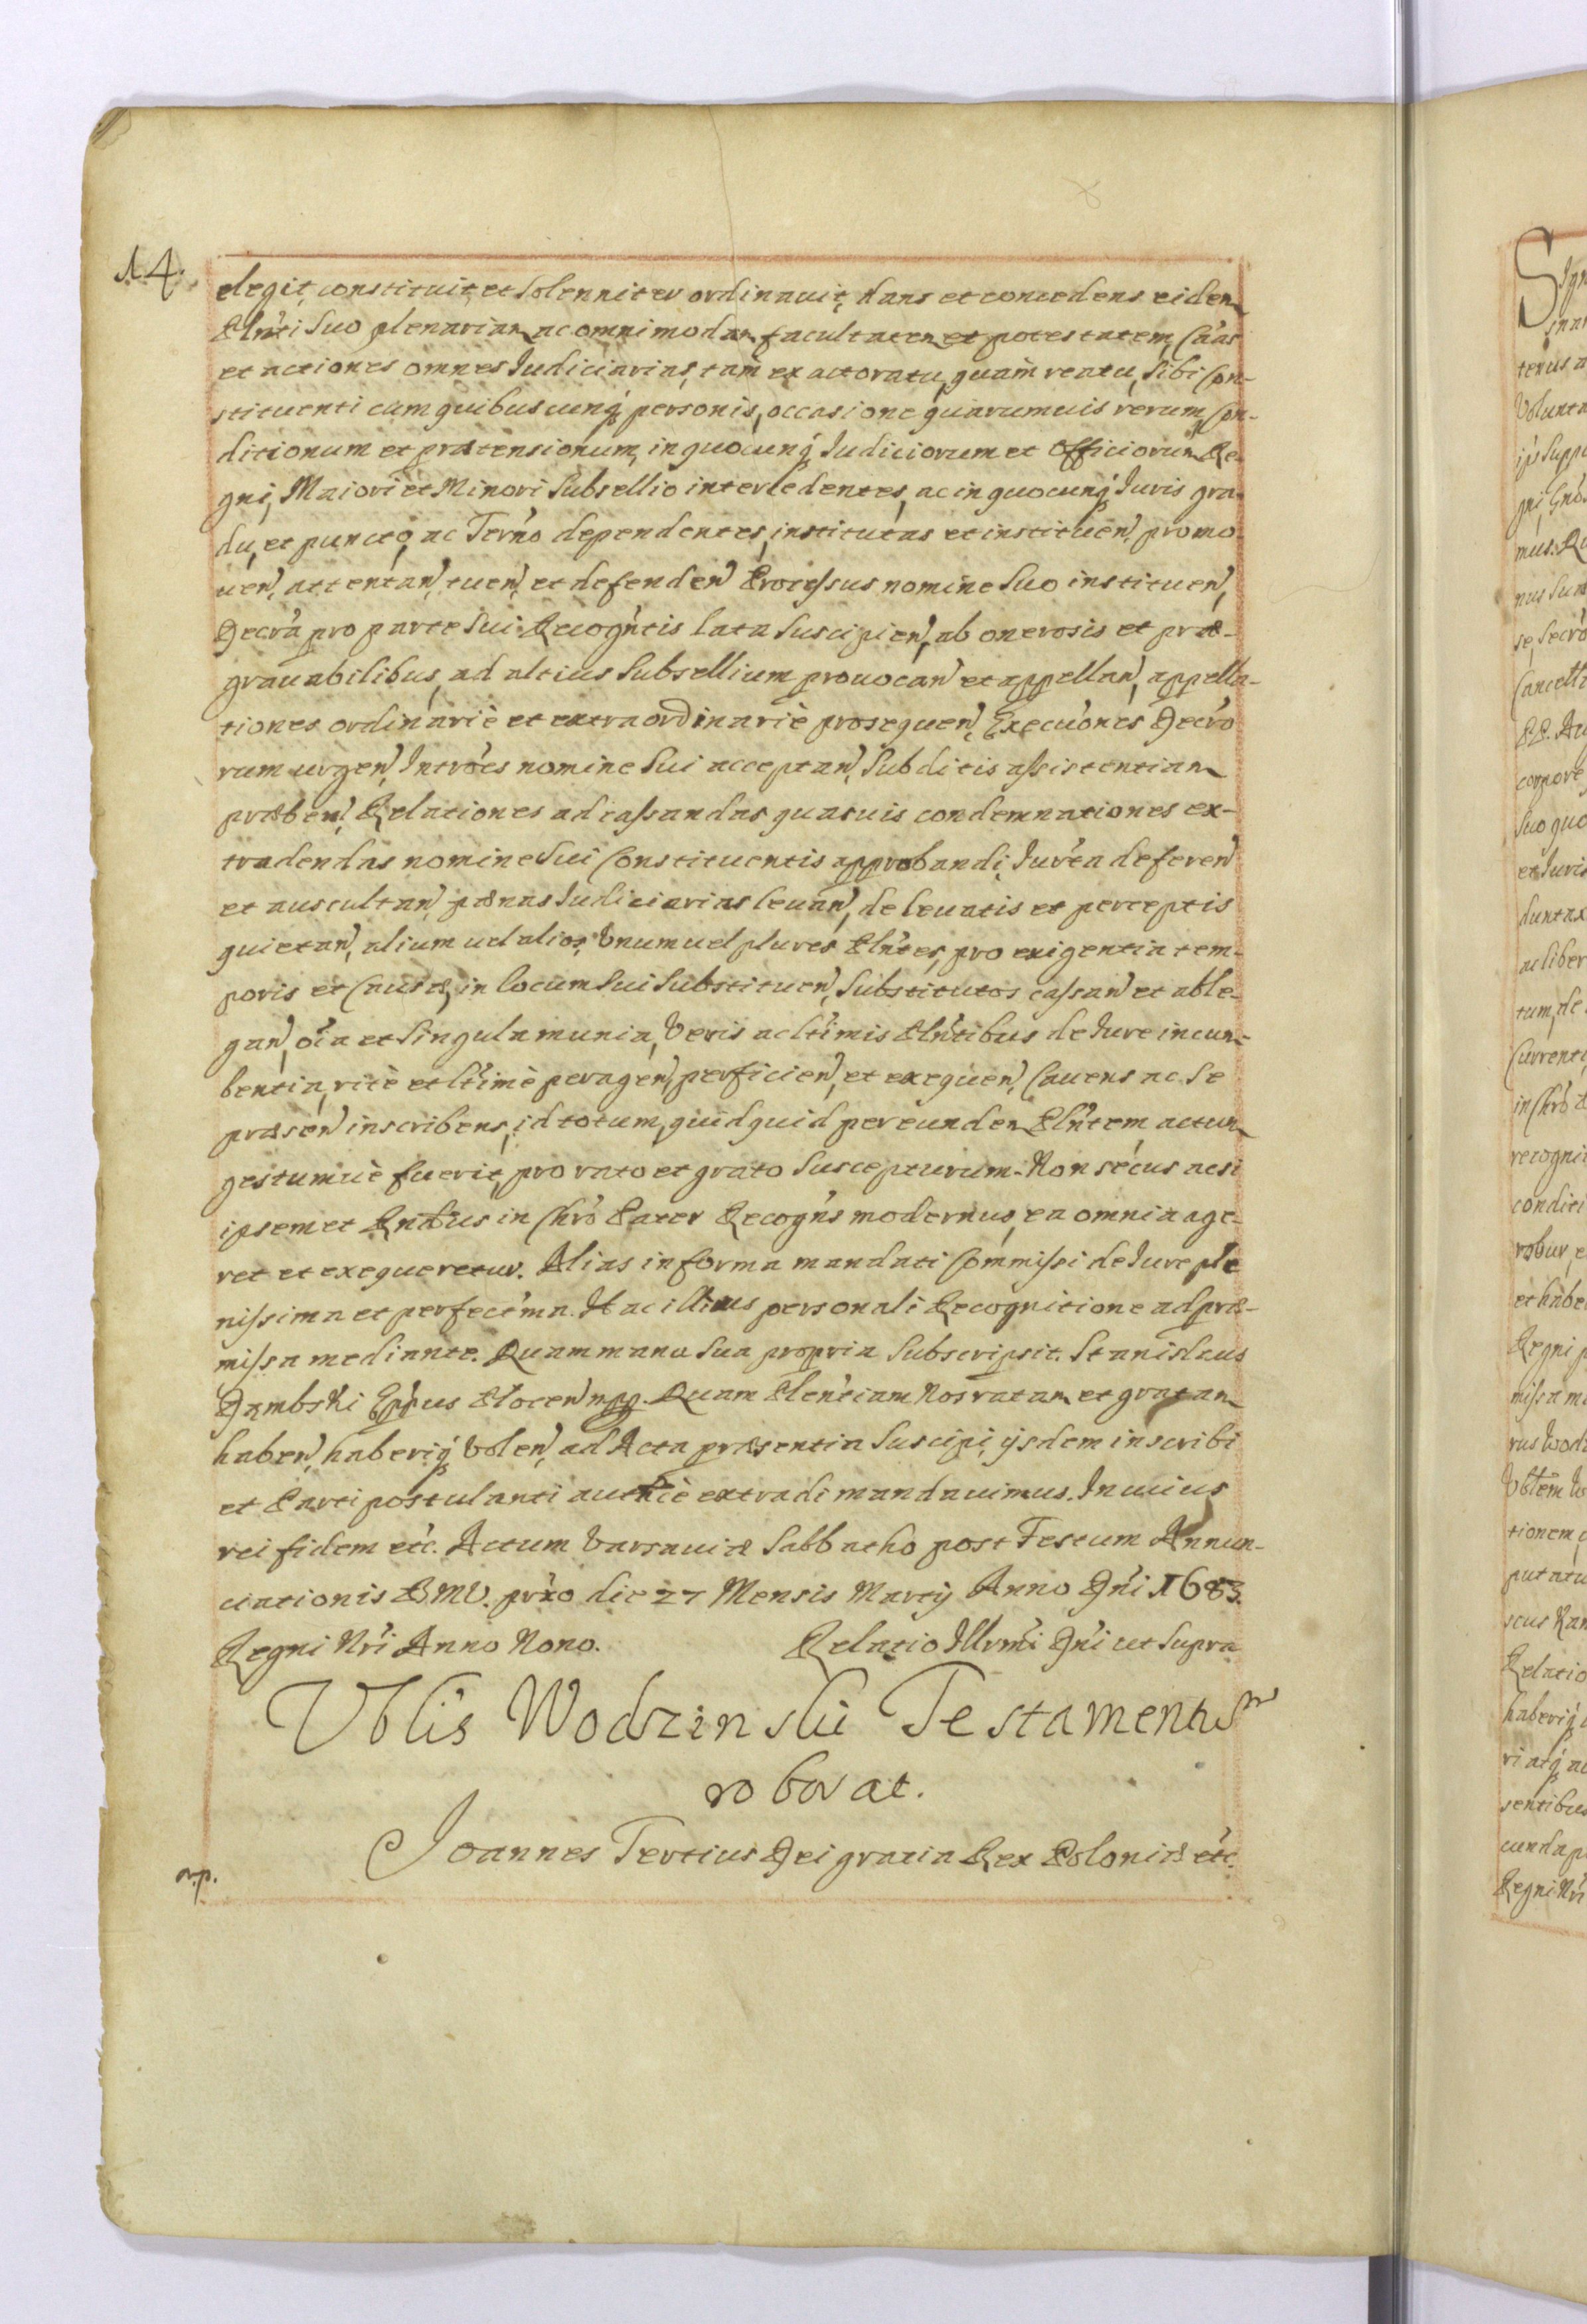 14.
elegit, constituit, et Solenniter ordinavit, dans et concedens eidem
Plnti Suo plenariam ac omnimodam facultatem et potestatem, Caas
et actiones omnes Judiciarias, tam ex actoratu, quam reatu, Sibi Con-
stituenti cum quibuscunq personis, occasione quarumuis rerum, Con-
ditionum et prætensionum, in quocunq Judiciorum et Officiorum Re
gni, Maiori et Minori Subsellio intercedentes, ac in quocunq Juris gra-
du, et puncto, ac Terno dependentes, institutas et instituen, promo
uen, attentan, tuen, et defenden Processus nomine Suo instituen,
Decra pro parte Sui Recogntis lata Suscipien, ab onerosis et præ-
grauabilibus, ad altius Subsellium prouocan et appellan, appella-
tiones ordinariè et extraordinariè prosequen, Execuones Decro
rum urgen, Introes nomine Sui acceptan, Subditis assistentiam
præben, Relationes ad cassandas quasuis condemnationes ex-
tradendas nomine Sui Constituentis approbandi, Jurea deferen
et auscultan, pænas Judiciarias leuan, de leuatis et perceptis
quietan, alium uel alios, Unum uel plures Plntes, pro exigentia tem-
poris et Causæ, in locum Sui Substituen, Substitutos cassan et able-
gan, oia et Singula munia, Veris ac ltimis Plntibus de Jure incum-
bentia, ritè et ltimè peragen, perficien, et exequen, Cauens ac Se
præsen inscribens, id totum, quidquid per eundem Plntem actum
gestumuè fuerit, pro rato et grato Suscepturum. Non secus acsi
ipsemet Rndus in Chro Pater Recogns modernus, ea omnia age-
ret et exequeretur. Alias in forma mandati Commissi de Jure ple
nissima et perfectma. Hac illius personali Recognitione ad præ-
missa mediante. Quam manu Sua propria Subscripsit. Stanislaus
Dąmbski Eppus Plocen mpp. Quam Plentiam Nos ratam et gratam
haben, haberiq Volen, ad Acta præsentia Suscipi, ijsdem inscribi
et Parti postulanti authcè extradi mandauimus. In cuius
rei fidem etc. Actum Varsauiæ Sabbatho post Festum Annun-
ciationis B M V. prxo die 27 Mensis Martij Anno Dni 1683.
Regni Nri Anno Nono. Relatio Illrmi Dni ut Supra
Vblis Wodzinski Testamentum
roborat.
Joannes Tertius Dei gratia Rex Poloniæ etc.